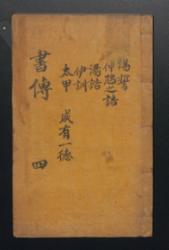 湯誓
仲虺之誥
湯誥
伊訓
太甲
咸有一德
書傳
四